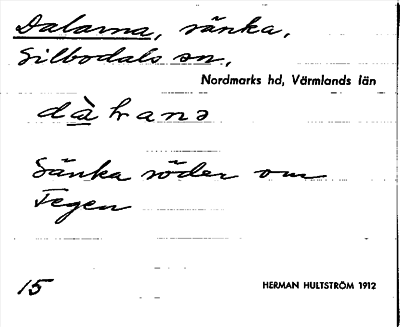 Dalarna, sänka,
Silbodals sn,
Nordmarks hd, Värmlands län
dàrana
Sänka söder om
Tegen
15 HERMAN HULTSTRÖM 1912